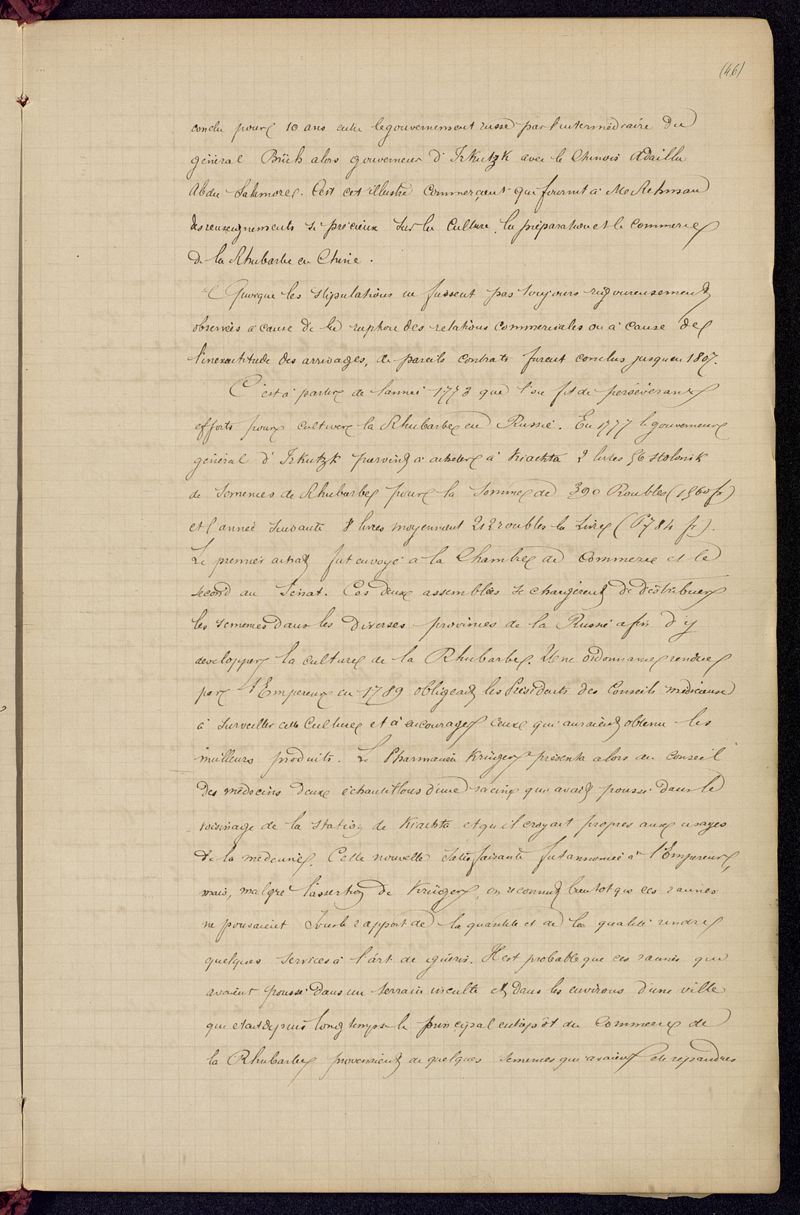 (46)
conclu pour 10 ans entre le gouvernement russe par l'intermédiaire du
général Brüh alors gouverneur d'Irkutzk avec le Chinois
Abdu . C'est cet illustre commerçant qui fournit à Mr Rehman
des renseignements si précieux sur la culture, la préparation et le commerce
de la Rhubarbe en Chine.
Quoique les stipulations ne fussent pas toujours rigoureusement
observées à cause de la rupture des relations commerciales ou à cause de
l'inexactitude des arrivages, de pareils contrats furent conclus jusqu'en 1807.
C'est à partir de l'année 1773 que l'on fit de persévérants
efforts pour cultiver la Rhubarbe en Russie. En 1777 le gouverneur
général d'Irkutzk parvint à acheter à Kiachta 2 livres 56 stolonik
de semences de Rhubarbe pour la somme de 390 Roubles (1560 fr)
et l'année suivante 8 livres moyennant 212 roubles la livre (6784 fr).
Le premier achat fut envoyé à la Chambre de Commerce et le
second au Sénat. Ces deux assemblées se chargèrent de distribuer
les semences dans les diverses provinces de la Russie afin d'y
developper la culture de la Rhubarbe. Une ordonnance rendue
par l'Empereur en 1789 obligeait les Présidents des Conseils médicaux
à surveiller cette culture et à encourager ceux qui auraient obtenu les
meilleurs produits. Le Pharmacien Krüger présenta alors au conseil
des médecins deux échantillons d'une racine qui avait poussé dans le
voisinage de la station de Kiachta et qu'il croyait propres aux usages
de la medecine. Cette nouvelle satisfaisante fut annoncée à l'Empereur,
mais, malgré l'assertion de Krüger, on reconnut bientot que ces racines
ne pouvaient sous le rapport de la quantité et de la qualité rendre
quelques services à l'art de guérir. Il est probable que ces racines qui
avaient poussé dans un terrain inculte et dans les environs d'une ville
qui etait depuis longtemps le principal entrepôt du commerce de
la Rhubarbe provenaient de quelques semences qui avaient été repandues